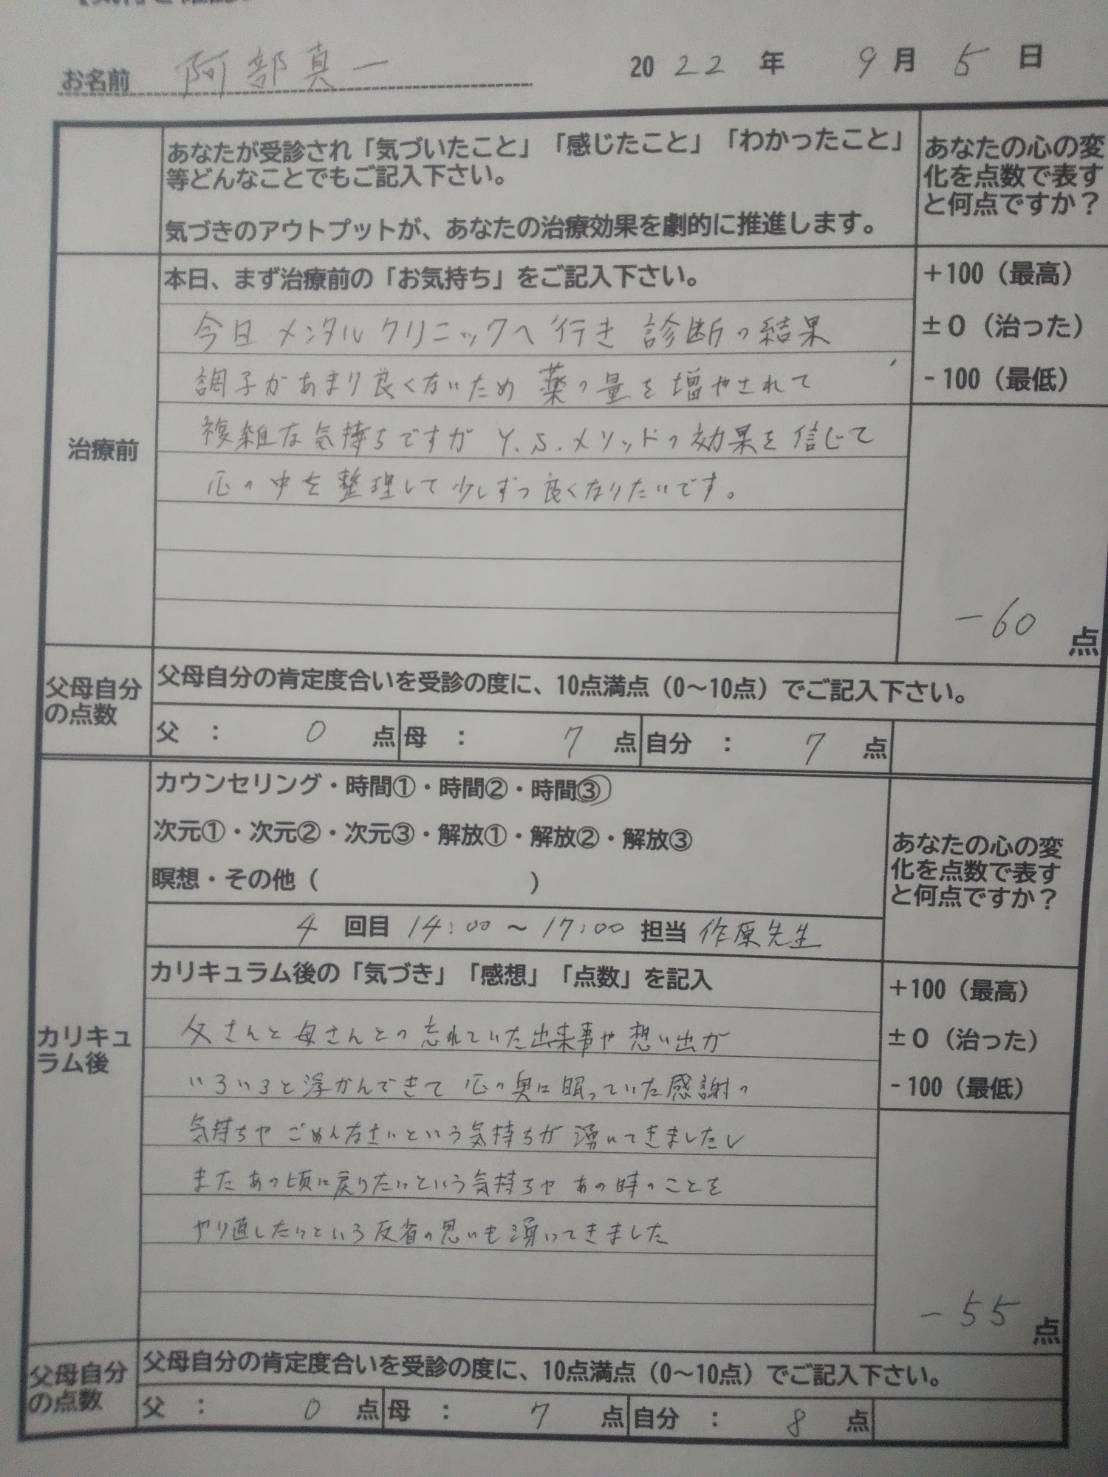 お名前 阿部真一 2022年 9月 5日
あなたが受診され「気づいたこと」「感じたこと」「わかったこと」
等どんなことでもご記入下さい。
気づきのアウトプットが、あなたの治療効果を劇的に推進します。
あなたの心の変
化を点数で表す
と何点ですか？
治療前
本日、まず治療前の「お気持ち」をご記入下さい。
今日 メンタルクリニックへ行き 診断の結果
調子があまり良くないため 薬の量を増やされて
複雑な気持ちですが Y.S.メソッドの効果を信じて
心の中を整理して少しずつ良くなりたいです。
+100（最高）
±0（治った）
-100（最低）
-60 点
父母自分
の点数
父母自分の肯定度合いを受診の度に、10点満点（0〜10点）でご記入下さい。
父 ： 0 点 母 ： 7 点 自分 ： 7 点
カリキュ
ラム後
カウンセリング・時間①・時間②・時間③
次元①・次元②・次元③・解放①・解放②・解放③
瞑想・その他（ ）
4 回目 14:00 〜 17:00 担当 作原先生
カリキュラム後の「気づき」「感想」「点数」を記入
父さんと母さんとの忘れていた出来事や想い出が
いろいろと浮かんできて 心の奥に眠っていた感謝の
気持ちや ごめんなさいという気持ちが 湧いてきましたし
またあの頃に戻りたいという気持ちや あの時のことを
やり直したいという反省の思いも湧いてきました
あなたの心の変
化を点数で表す
と何点ですか？
+100（最高）
±0（治った）
-100（最低）
-55 点
父母自分
の点数
父母自分の肯定度合いを受診の度に、10点満点（0〜10点）でご記入下さい。
父 ： 0 点 母 ： 7 点 自分 ： 8 点